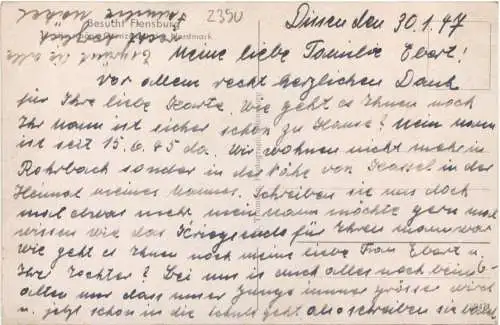 Besucht Flensburg
2350
Dinsen den 30.1.47
Meine liebe Familie Ebert!
Vor allem recht herzlichen Dank
für Ihre liebe Karte. Wie geht es Ihnen noch
Ihr Mann ist sicher schon zu Hause? Mein Mann
ist seit 15.6.45 da. Wir wohnen nicht mehr in
Rohrbach sonder in der Nähe von Kassel in der
Heimat meines Mannes. Schreiben sie uns doch
mal etwas mehr, mein Mann möchte gern mal
wissen wie das Kriegsende für Ihren Mann war
Wie geht es Ihnen noch meine liebe Frau Ebert u.
Ihre Tochter? Bei uns is auch alles noch beim
alten nur dass unser Junge immer grösser wird
u. jetzt schon in die Schule geht also schreiben sie